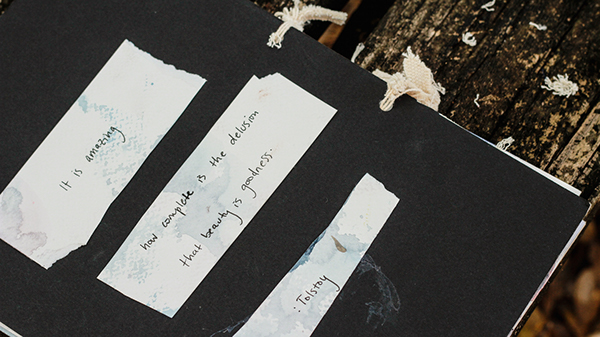 It is amazing
how complete is the delusion
that beauty is goodness.
: Tolstoy